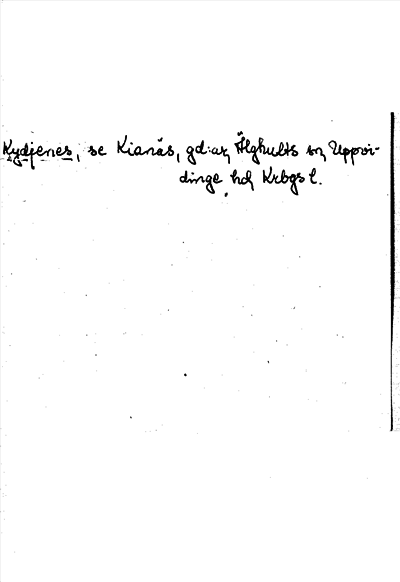 Kydjenes, se Kianäs, gd:ar, Älghults sn, Uppvi-
dinge hd, Krbgs l.